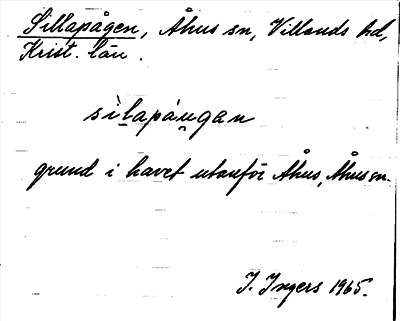 Sillapågen, Åhus sn, Villands hd,
Krist. län.
sìlapáugan
grund i havet utanför Åhus, Åhus sn.
I. Ingers 1965.